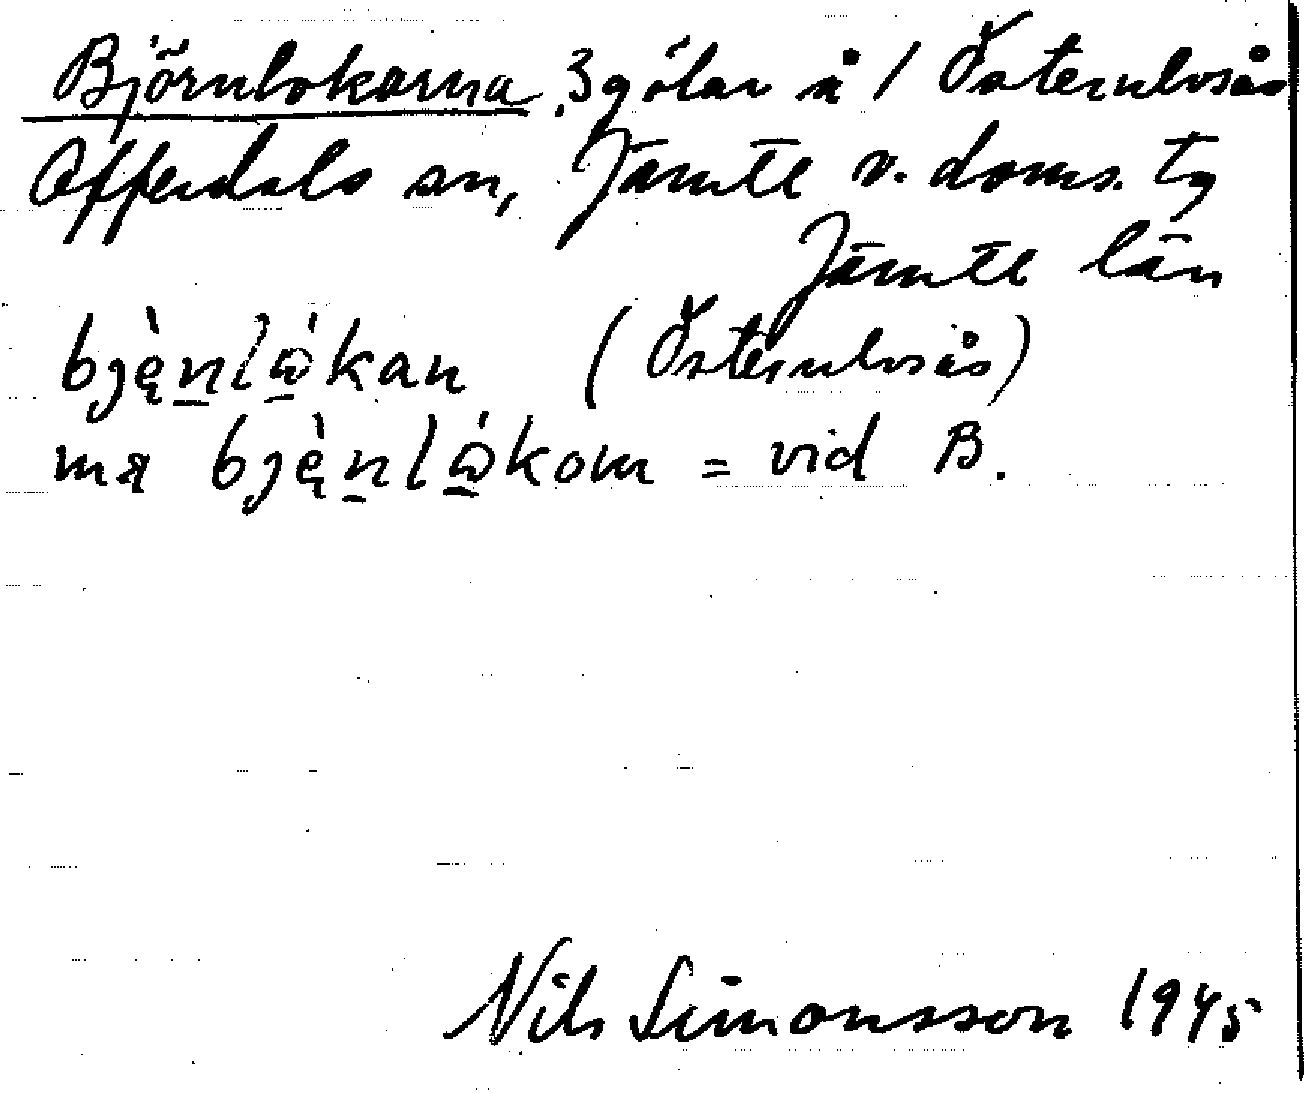 Björnlokarna 3 gölar å / Österulvsås
Offerdals sn, Jämtl v. doms. tg
Jämtl län
bję̀n̲lò̲kan (Österulvsås)
mä bję̀n̲lò̲kom = vid B.
Nils Simonsson 1945